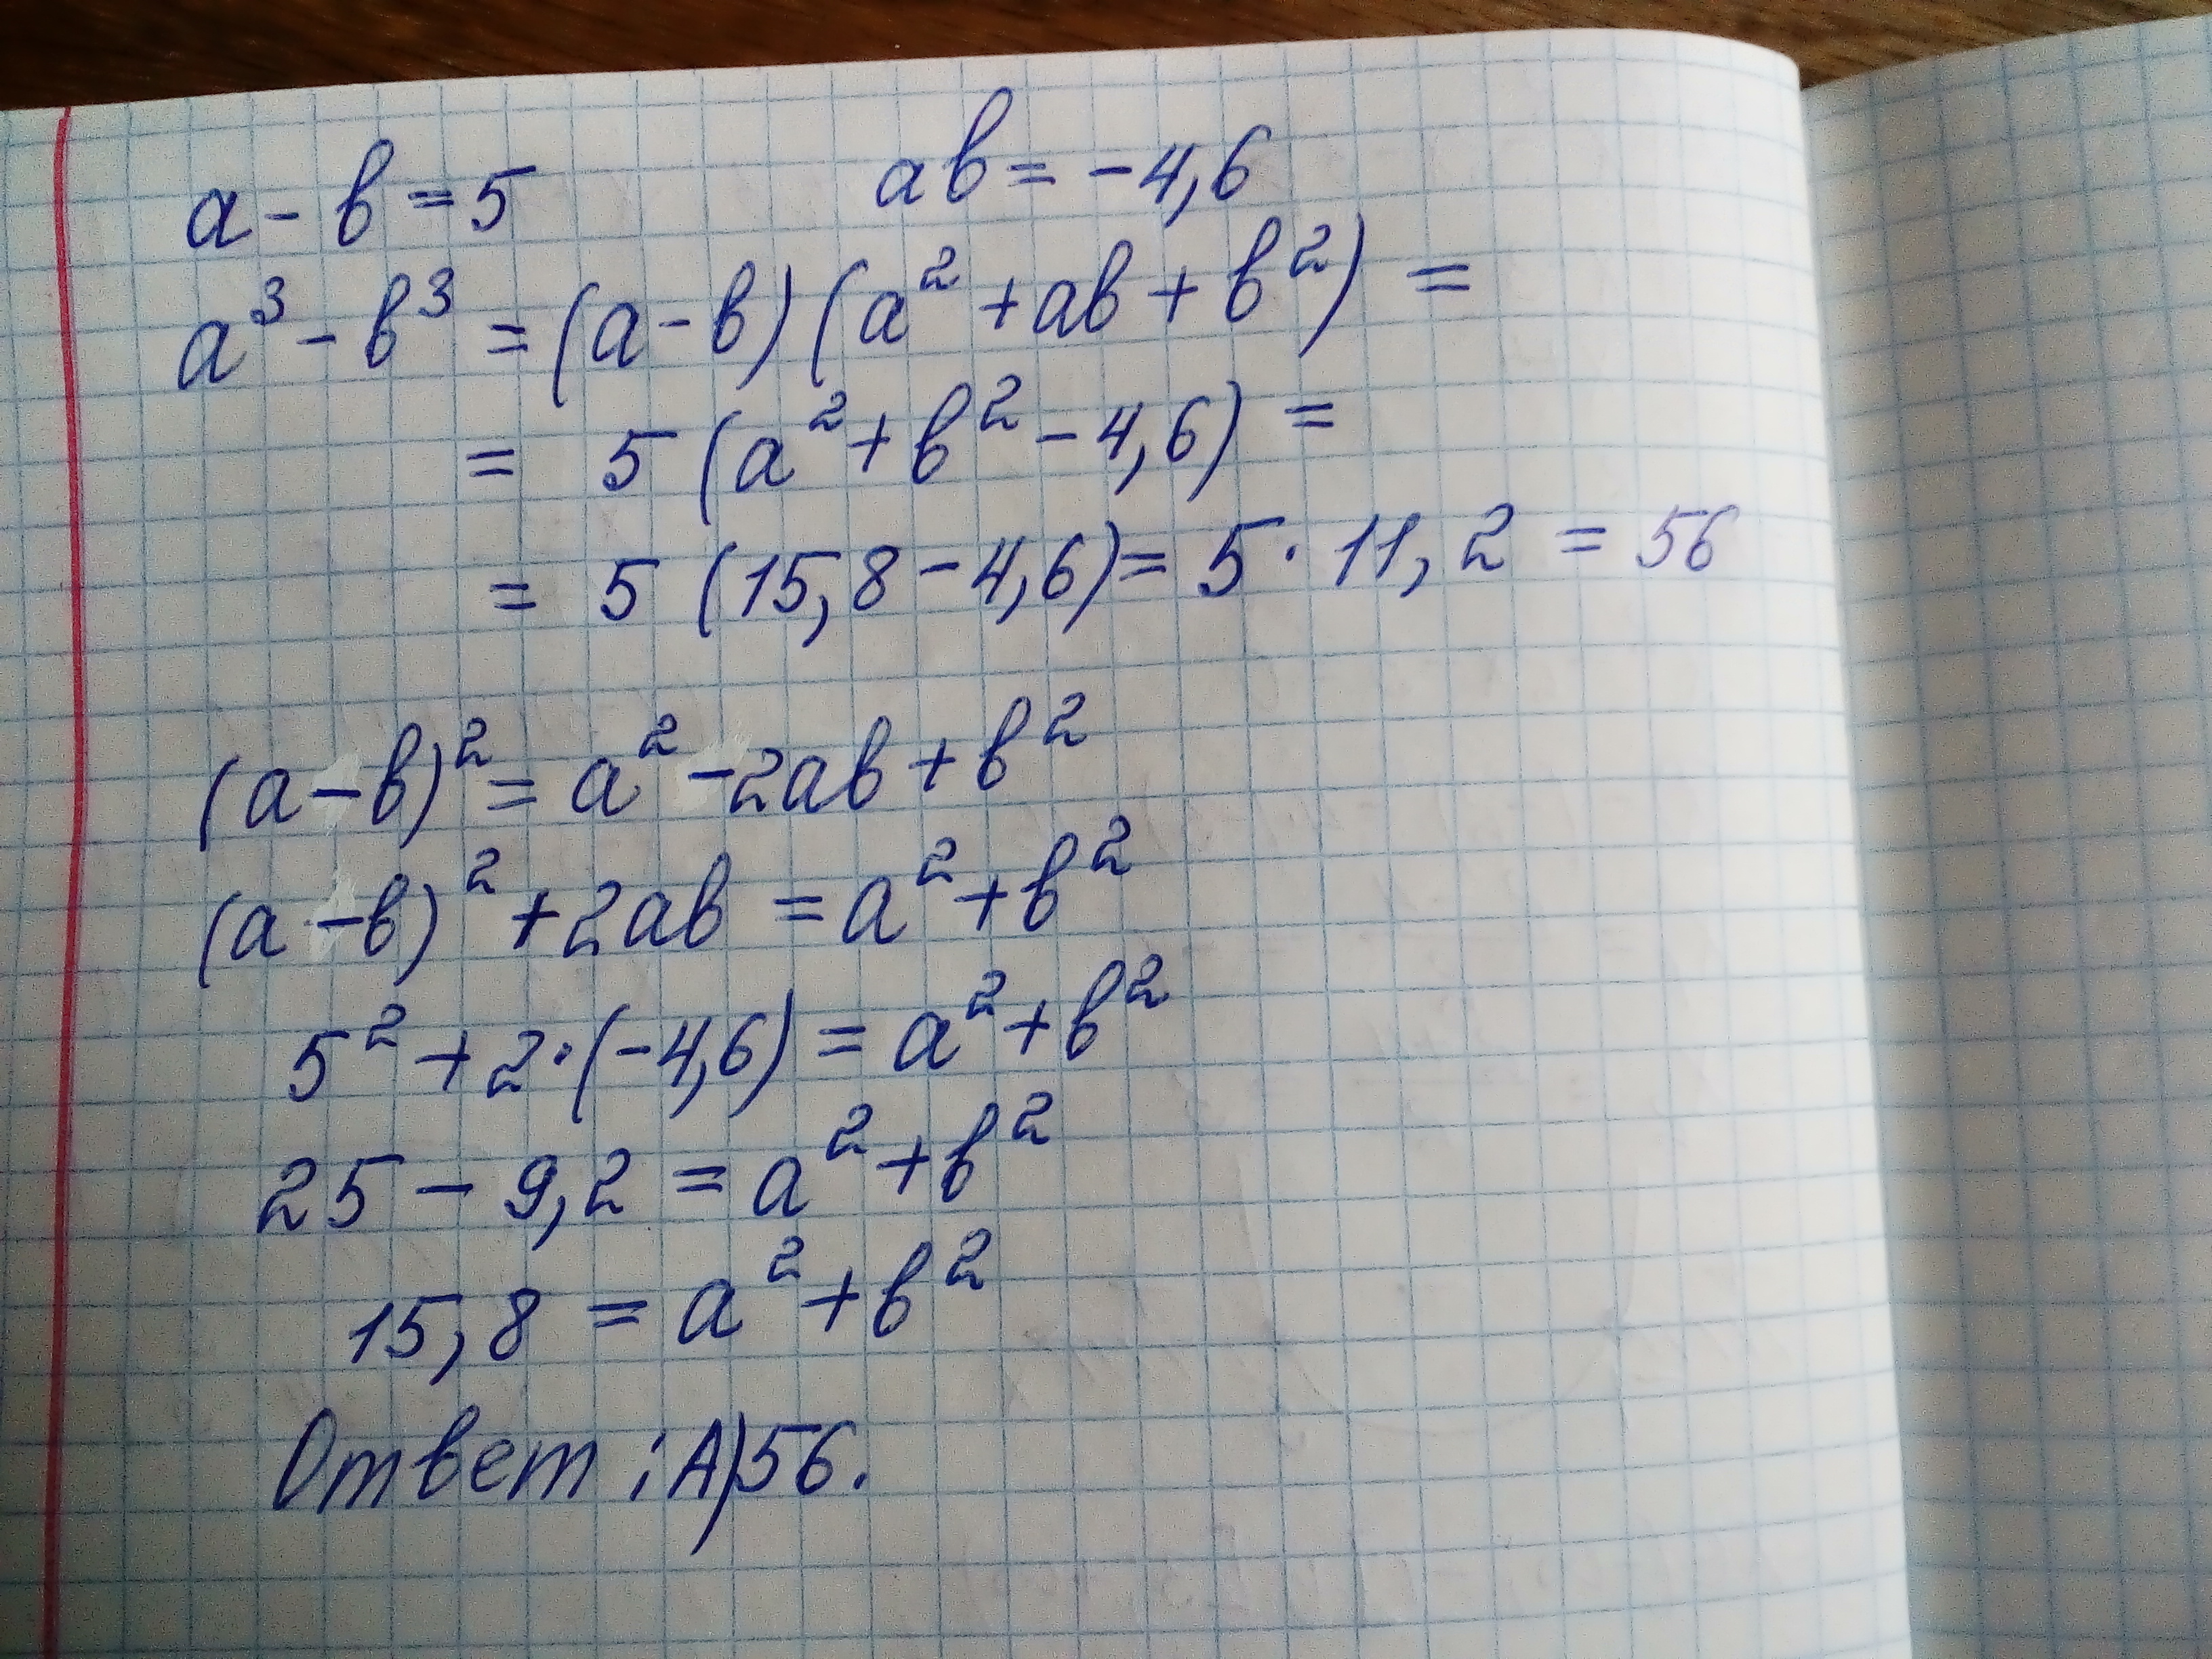 a - b = 5 ab = -4,6
a³ - b³ = (a - b) (a² + ab + b²) =
= 5 (a² + b² - 4,6) =
= 5 (15,8 - 4,6) = 5 · 11,2 = 56
(a - b)² = a² - 2ab + b²
(a - b)² + 2ab = a² + b²
5² + 2·(-4,6) = a² + b²
25 - 9,2 = a² + b²
15,8 = a² + b²
Ответ: А) 56.